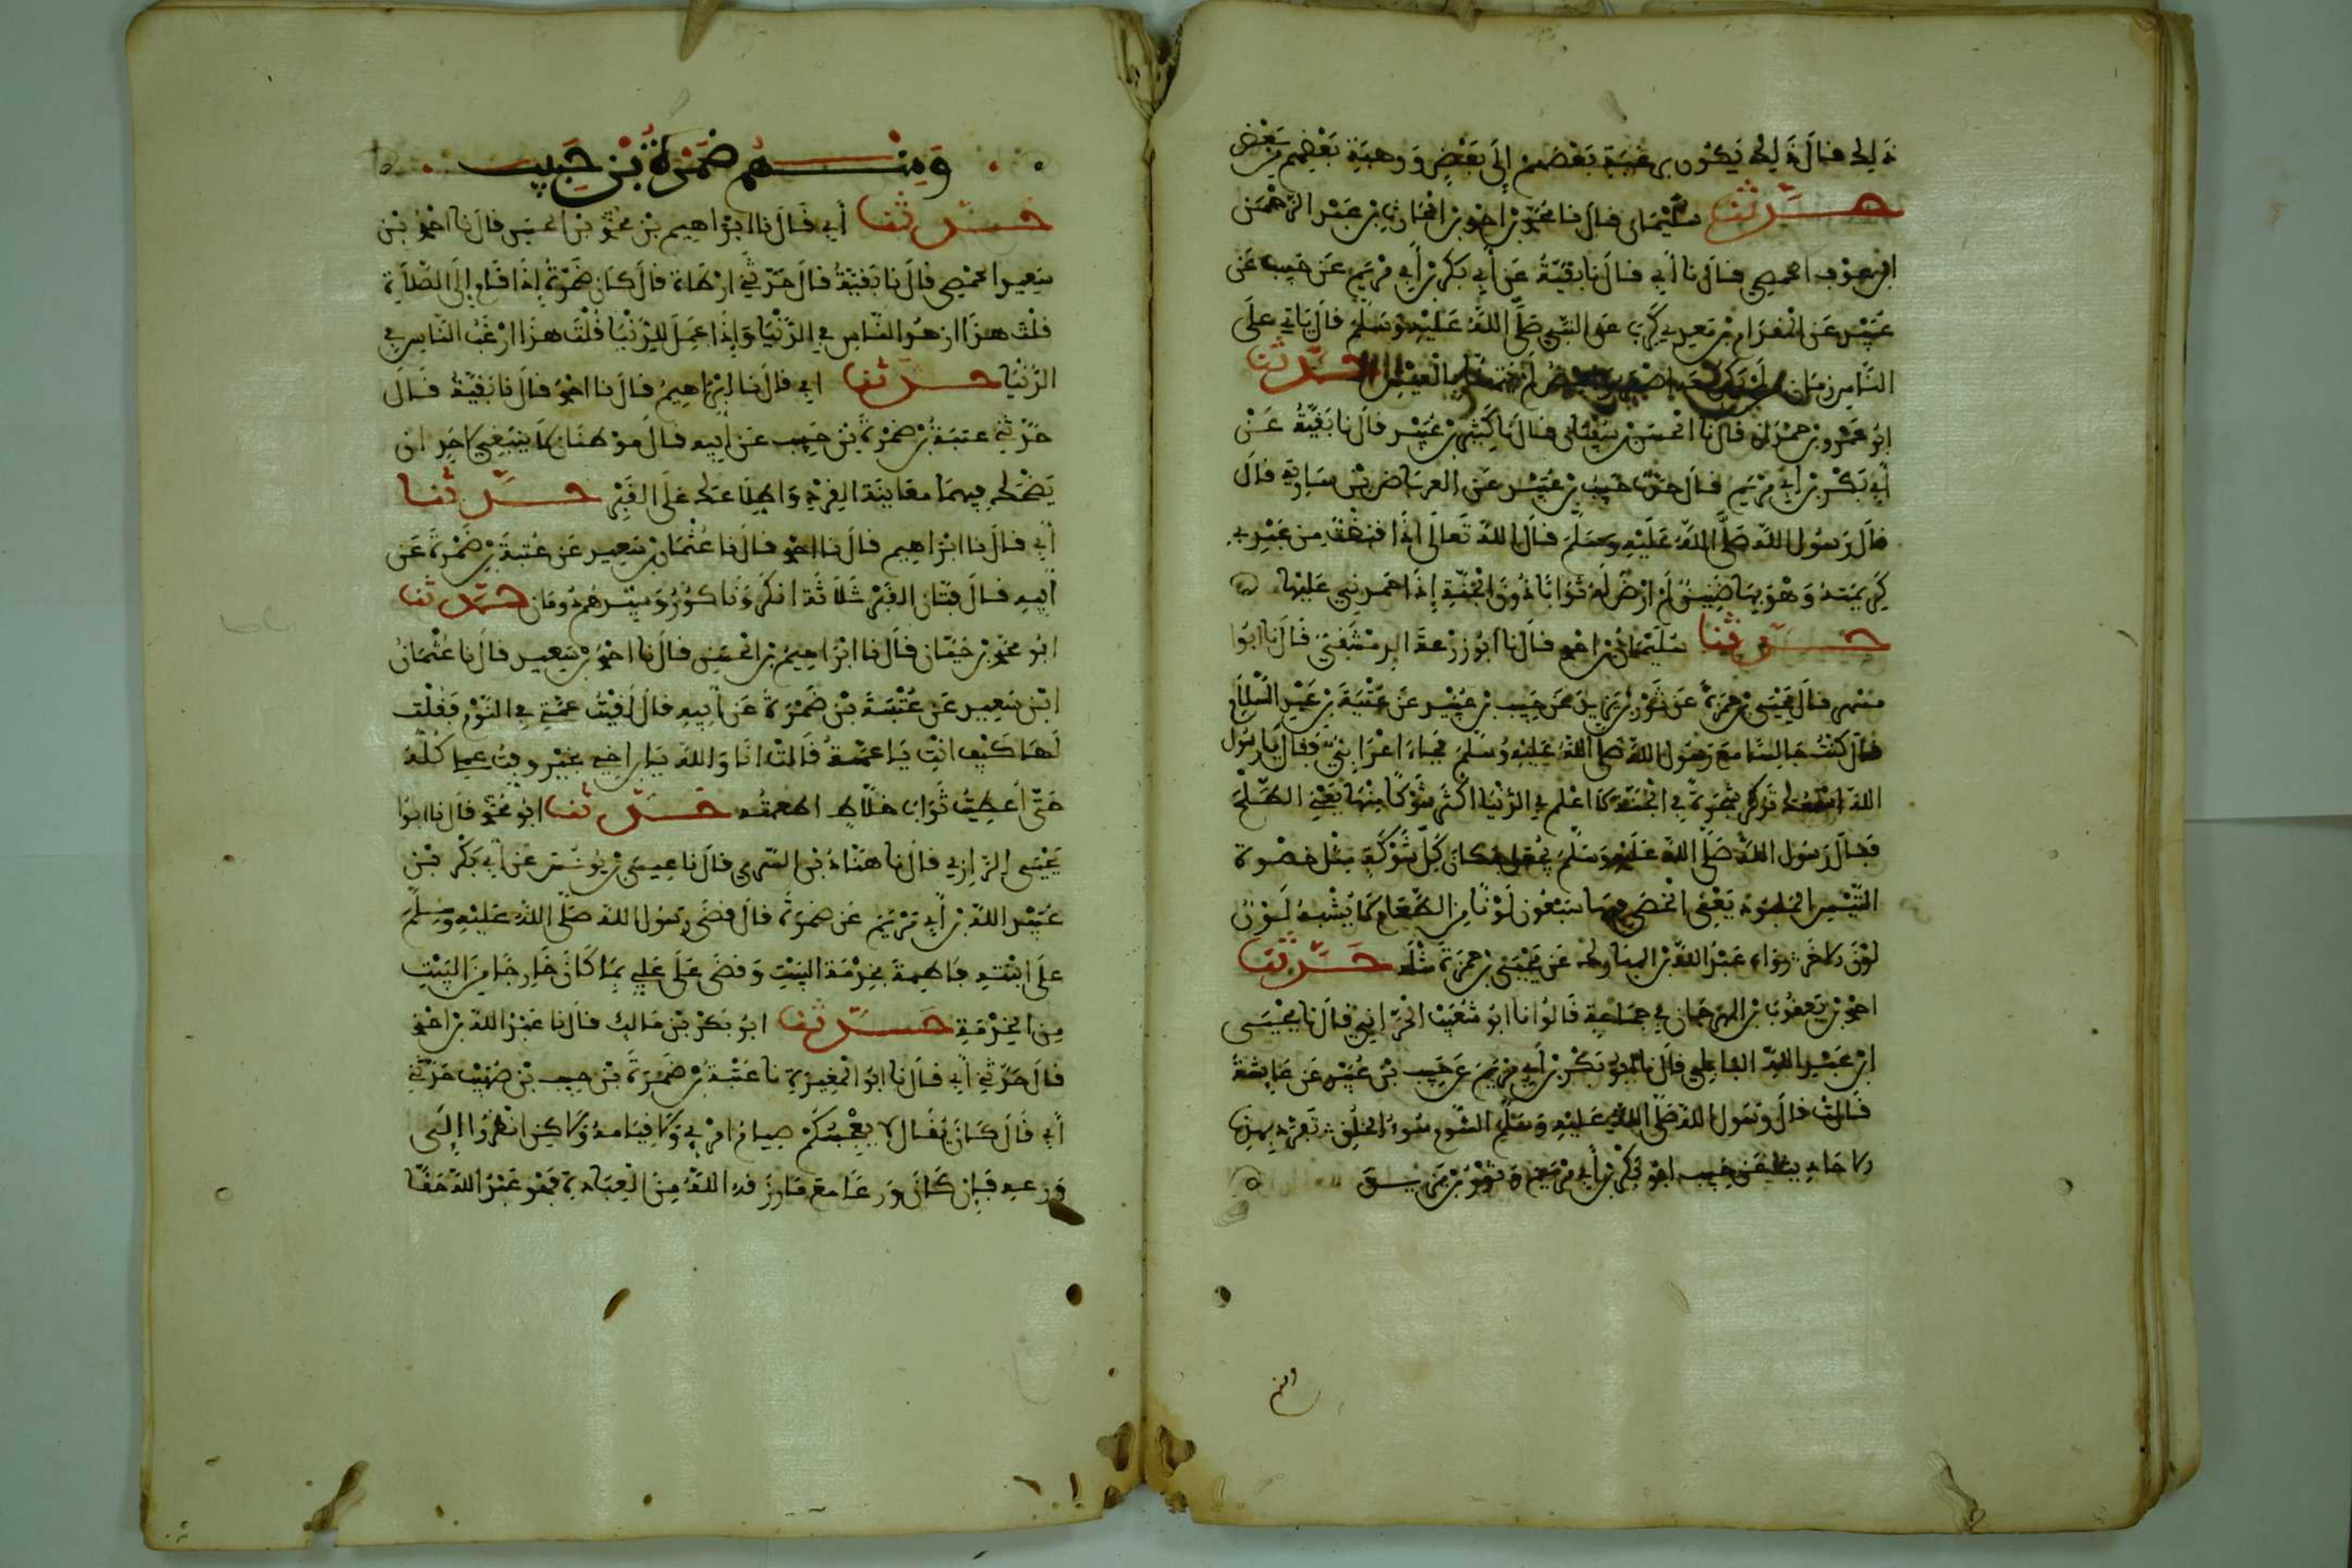 ذلك قال ذلك يكون برغبة بعضهم إلى بعض ورهبة بعضهم من بعض
حدثنا سليمان قال نا محمد بن احمد بن الحارث بن عبد الرحمن
ابن عوف الحمصي قال نا أبي قال نا بقية عن أبي بكر بن أبي مريم عن حبيب عن
عبيد عن المقدام بن معدي كرب عن النبي صلى الله عليه وسلم قال ياتي على
الناس زمان من لم يكن معه لم العيش حدثنا
ابو عمرو بن حمدان قال نا الحسن بن سفيان قال نا كثير بن عبيد قال نا بقية عن
أبي بكر بن أبي مريم قال حدثنا حبيب بن عبيد عن العرباض بن سارية قال
قال رسول الله صلى الله عليه وسلم قال الله تعالى اذا قبضت من عبدي
كريمته وهو بها ضنين لم ارض له ثوابا دون الجنة إذا حمدني عليها
حدثنا سليمان بن احمد قال نا ابو زرعة الدمشقي قال نا ابوا
مسهر قال يحيى بن حمزة عن ثور بن يزيد عن حبيب بن عبيد عن عتبة بن عبد السلام
قال كنت جالسا مع رسول الله صلى الله عليه وسلم فجاء اعرابي فقال يا رسول
الله اسمعك تذكر شجرة في الجنة لا اعلم في الدنيا اكثر شوكا منها يعني الطلح
فقال رسول الله صلى الله عليه وسلم يجعل مكان كل شوكة مثل خصوة
التيس الملبود يعني الخصي فيها سبعون لونا من الطعام لا يشبه لون
لون الاخر رواه عبد الله بن المبارك عن يحيى بن حمزة مثله حدثنا
احمد بن يعقوب بن المهرجان في جماعة قالوا نا ابو شعيب الحراني قال نا يحيى
ابن عبد الله البابلي قال نا ابو بكر بن أبي مريم عن حبيب بن عبيد عن عايشة
قالت قال رسول الله صلى الله عليه وسلم الشوم سوء الخلق تفرد بهذه
الاحاديث عن حبيب ابو بكر بن أبي مريم وثور بن يزيد
ومنهم ضمرة بن حبيب
حدثنا أبي قال نا ابراهيم بن محمد بن الحسن قال نا احمد بن
سعيد الحمصي قال نا بقية قال حدثني ارطاة قال كان ضمرة إذا قام إلى الصلاة
قلت هذا ازهد الناس في الدنيا وإذا عمل للدنيا قلت هذا ارغب الناس في
الدنيا حدثنا ابي قال نا ابراهيم قال نا احمد قال نا بقية قال
حدثني عتبة بن ضمرة بن حبيب عن ابيه قال موطنان لا ينبغي لاحد ان
يضحك فيهما معاينة القرد واطلاعك على القبر حدثنا
أبي قال نا ابراهيم قال نا احمد قال نا عثمان بن سعيد عن عتبة بن ضمرة عن
ابيه قال فتان القبر ثلاثة انكر وناكور وسيدهم رومان حدثنا
ابو محمد بن حيان قال نا ابراهيم بن الحسن قال نا احمد بن سعيد قال نا عثمان
ابن سعيد عن عتبة بن ضمرة عن أبيه قال لقيت عمتي في النوم فقلت
لها كيف انت يا عمة قالت انا والله يابن اخي بخير وفيت عملي كله
حتى أعطيت ثواب خلاط اطعمته حدثنا ابو محمد قال نا ابوا
يحيى الرازي قال نا هناد بن السري قال نا عيسى بن يونس عن أبي بكر بن
عبيد الله بن أبي مريم عن ضمرة قال قضى رسول الله صلى الله عليه وسلم
على ابنته فاطمة بخدمة البيت وقضى على علي بما كان خارجا من البيت
من الخدمة حدثنا ابو بكر بن مالك قال نا عبد الله بن احمد
قال حدثني أبي قال نا ابو المغيرة نا عتبة بن ضمرة بن حبيب بن صهيب حدثني
أبي قال كان يقال لا يعجبنكم صيام امرئ ولا قيامه ولاكن انظروا إلى
ورعه فإن كان ورعا مع ما رزقه الله من العبادة فهو عبد الله حقا